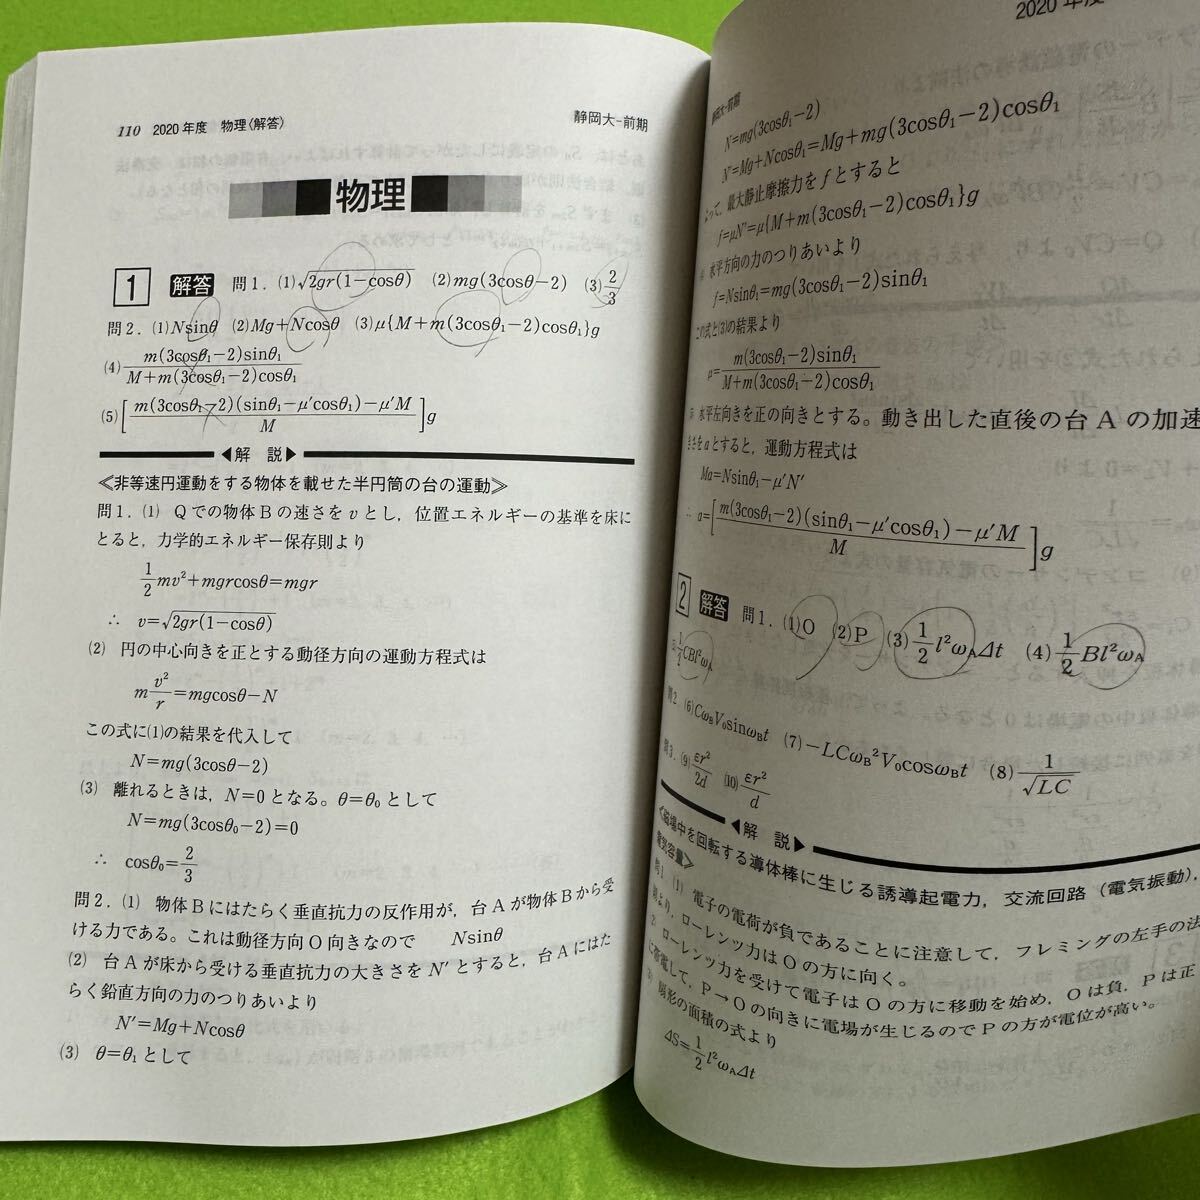 110 2020年度 物理〈解答〉 静岡大-前期
物理
1 解答 問1. (1)√2gr(1−cosθ) (2)mg(3cosθ−2) (3)2/3
問2. (1)Nsinθ (2)Mg+Ncosθ (3)μ{M+m(3cosθ₁−2)cosθ₁}g
(4) m(3cosθ₁−2)sinθ₁ / M+m(3cosθ₁−2)cosθ₁
(5) [m(3cosθ₁−2)(sinθ₁−μ′cosθ₁)−μ′M / M]g
◀解 説▶
≪非等速円運動をする物体を載せた半円筒の台の運動≫
問1. (1) Qでの物体Bの速さをvとし，位置エネルギーの基準を床に
とると，力学的エネルギー保存則より
1/2 mv²+mgrcosθ=mgr
∴ v=√2gr(1−cosθ)
(2) 円の中心向きを正とする動径方向の運動方程式は
m v²/r=mgcosθ−N
この式に(1)の結果を代入して
N=mg(3cosθ−2)
(3) 離れるときは，N=0となる。θ=θ₀として
N=mg(3cosθ₀−2)=0
∴ cosθ₀=2/3
問2. (1) 物体Bにはたらく垂直抗力の反作用が，台Aが物体Bから受
ける力である。これは動径方向O向きなので Nsinθ
(2) 台Aが床から受ける垂直抗力の大きさをN′とすると，台Aにはた
らく鉛直方向の力のつりあいより
N′=Mg+Ncosθ
(3) θ=θ₁として
2020年度
静岡大-前期
N=mg(3cosθ₁−2)
N′=Mg+Ncosθ₁=Mg+mg(3cosθ₁−2)cosθ₁
よって，最大静止摩擦力をfとすると
f=μN′=μ{M+m(3cosθ₁−2)cosθ₁}g
水平方向の力のつりあいより
f=Nsinθ₁=mg(3cosθ₁−2)sinθ₁
この式と(3)の結果より
μ=m(3cosθ₁−2)sinθ₁ / M+m(3cosθ₁−2)cosθ₁
水平左向きを正の向きとする。動き出した直後の台Aの加速
さをaとすると，運動方程式は
Ma=Nsinθ₁−μ′N′
∴ a=[m(3cosθ₁−2)(sinθ₁−μ′cosθ₁)−μ′M / M]g
2 解答 問1. (1)O (2)P (3)1/2 l²ω_AΔt (4)1/2 Bl²ω_A
(5)1/2 CBl²ω_A
問2. (6)Cω_BV₀sinω_Bt (7)−LCω_B²V₀cosω_Bt (8)1/√LC
問3. (9)εr²/2d (10)εr²/d
◀解 説▶
≪磁場中を回転する導体棒に生じる誘導起電力，交流回路（電気振動），
電気容量≫
問1. (1) 電子の電荷が負であることに注意して，フレミングの左手の法
則より，ローレンツ力はOの方に向く。
(2) ローレンツ力を受けて電子はOの方に移動を始め，Oは負，Pは正
に帯電して，P→Oの向きに電場が生じるのでPの方が電位が高い。
(3) 扇形の面積の式より
ΔS=1/2 l²ω_AΔt